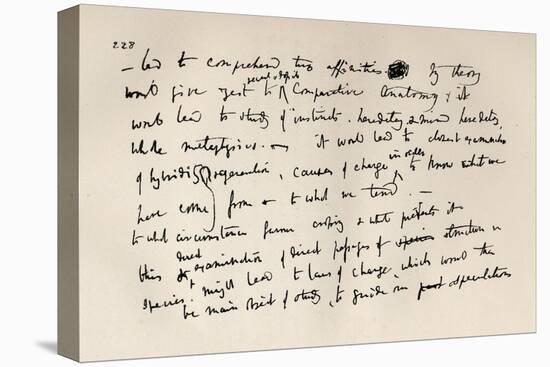 228
— led to comprehend true affinities. My theory
would give zest to recent & fossil Comparative Anatomy, & it
would lead to study of instincts, heredity & mind heredity,
whole metaphysics. — it would lead to closest examination
of hybridity & generation, causes of change in order to know what we
have come from & to what we tend. —
to what circumstances favour crossing & what prevents it
this & direct examination of direct passages of species structure in
species, might lead to laws of change, which would then
be main object of study, to guide our past speculations